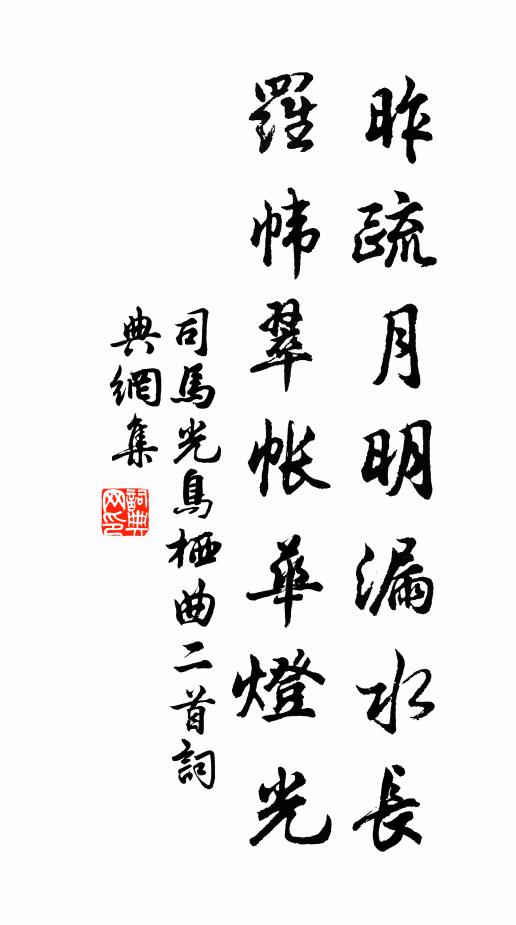 昨疏月明漏水長
羅幃翠帳華燈光
司馬光烏栖曲二首詞
典網集
詞典
网印